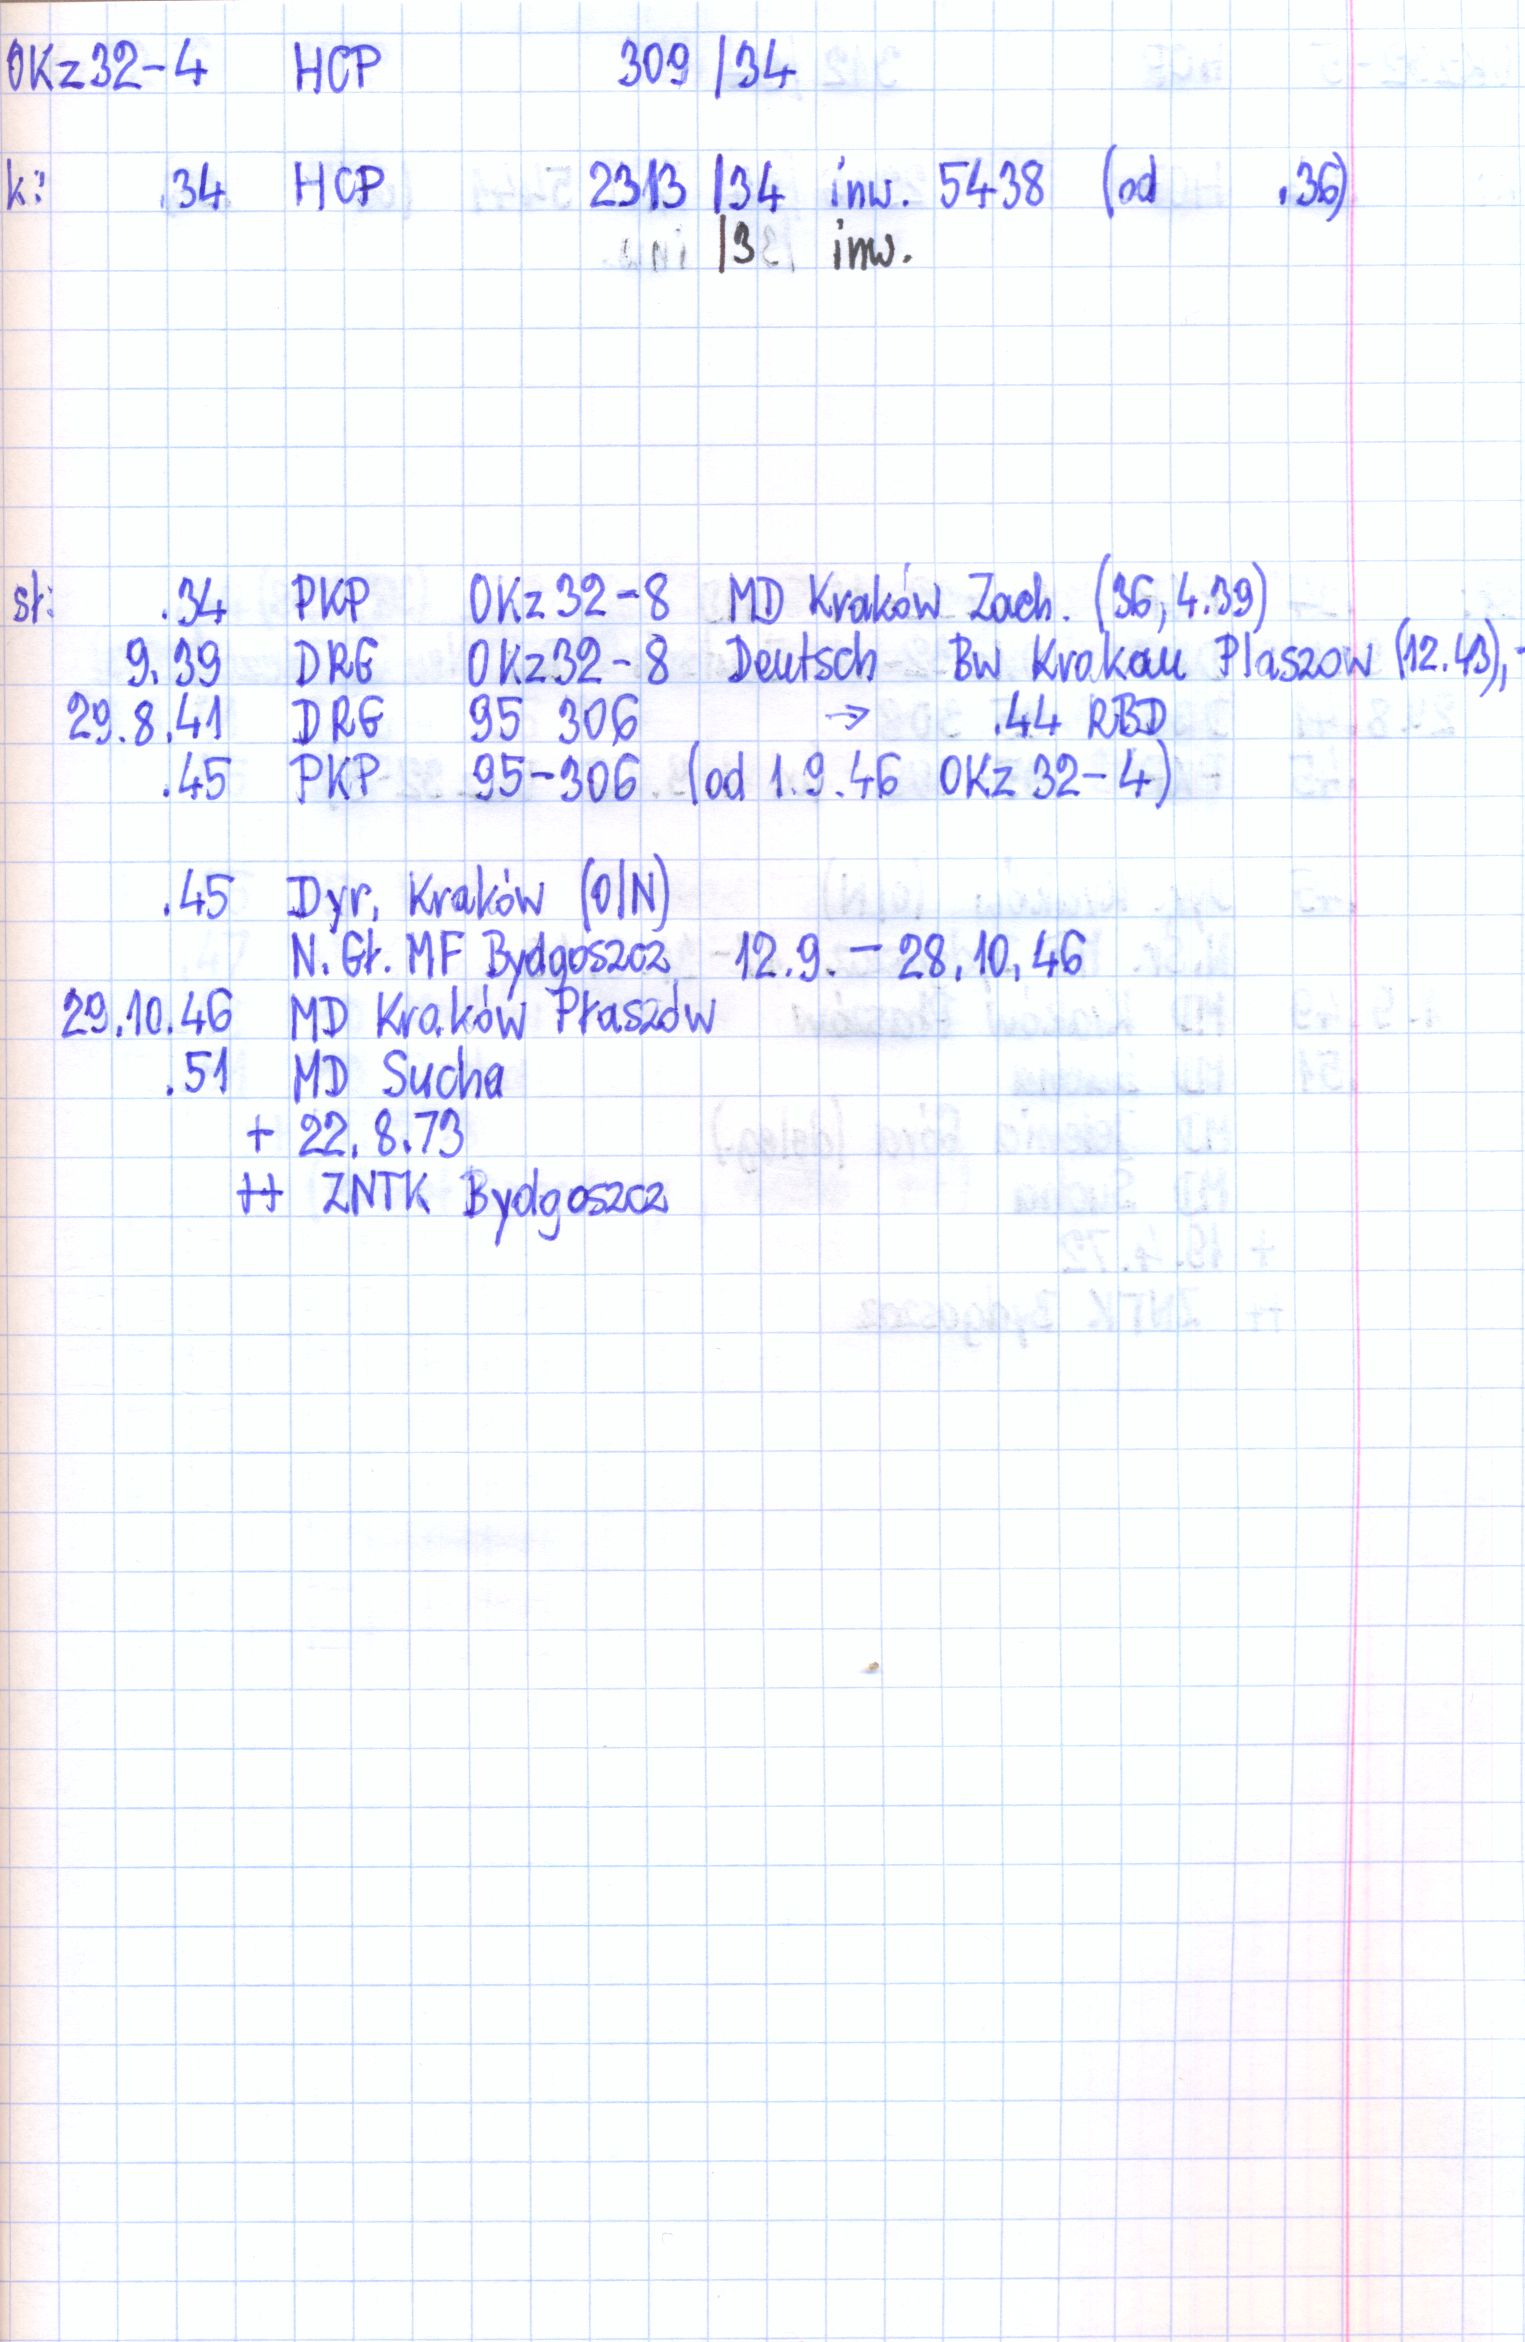 OKz32-4 HCP 309 /34
k: .34 HCP 2313 /34 inw. 5438 (od .36)
/3 inw.
sł: .34 PKP OKz32-8 MD Kraków Zach. (36, 4.39)
9.39 DRG OKz32-8 Deutsch Bw Krakau Plaszow (12.43), -
29.8.41 DRG 95 306 → .44 RBD
.45 PKP 95-306 (od 1.9.46 OKz 32-4)
.45 Dyr. Kraków (O/N)
N. Gł. MF Bydgoszcz 12.9. - 28.10.46
29.10.46 MD Kraków Płaszów
.51 MD Sucha
+ 22.8.73
++ ZNTK Bydgoszcz